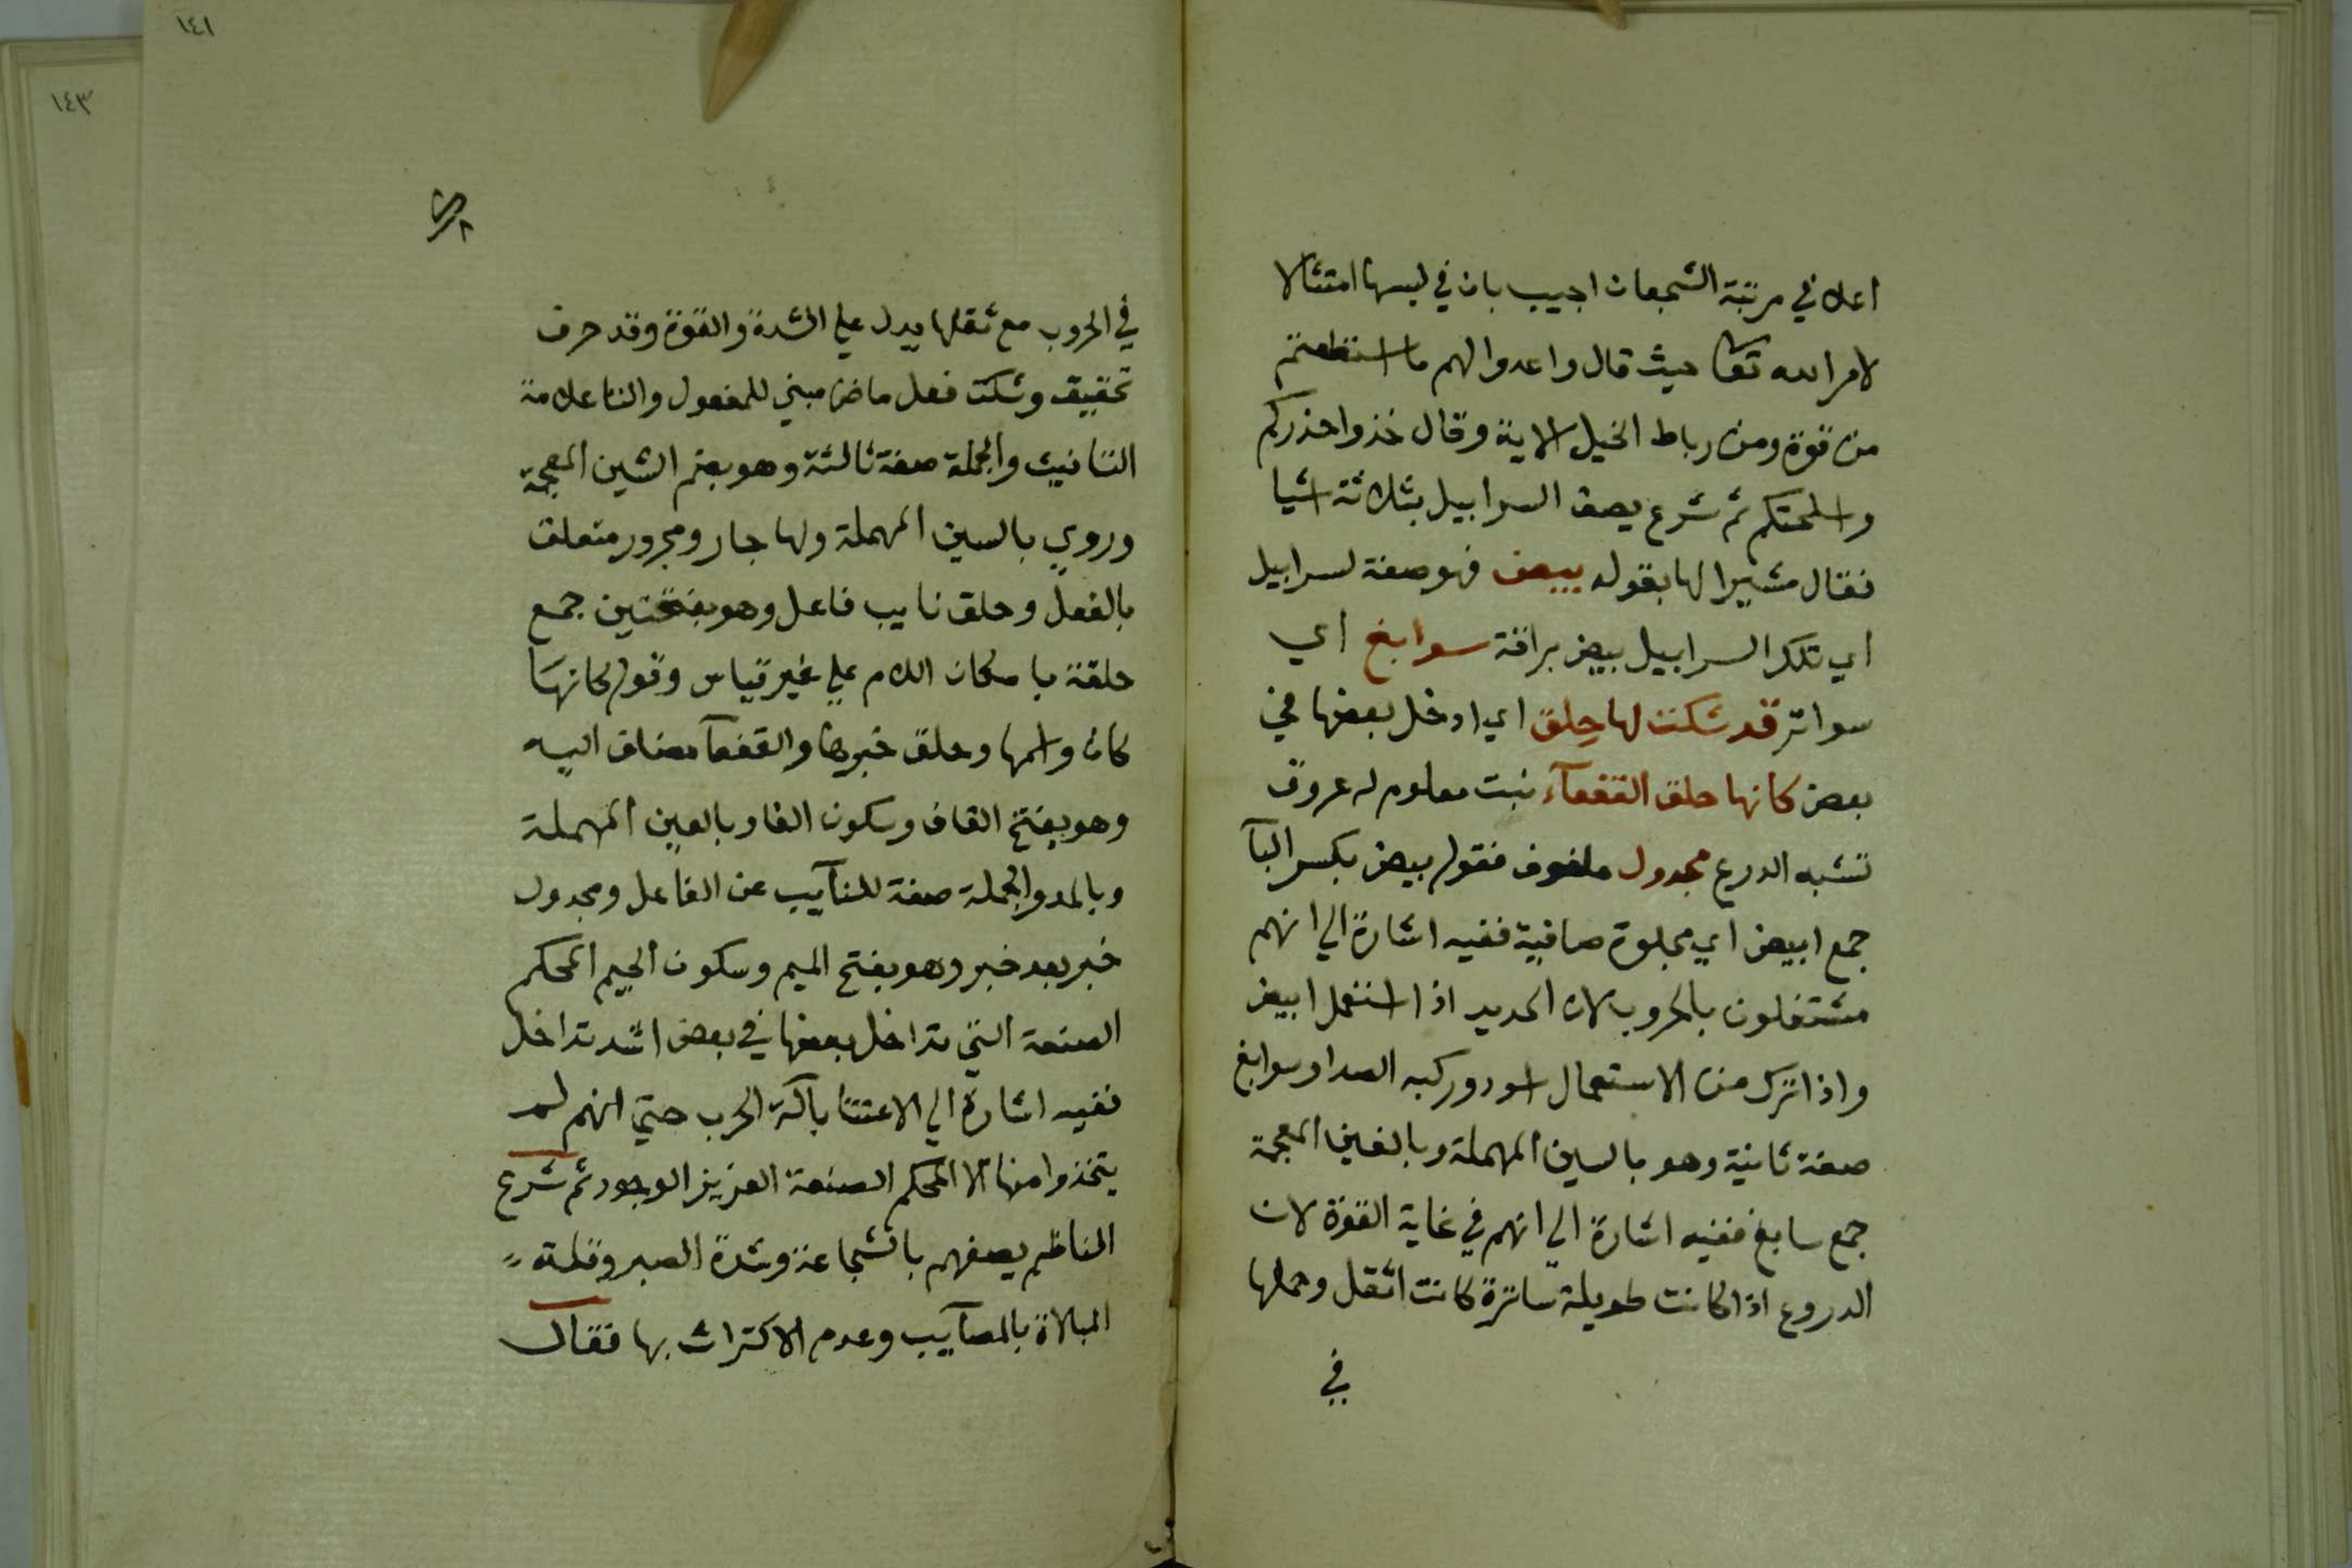 اعلا في مرتبة الشجعان اجيب بان في لبسها امتثالا
لامر الله تعالى حيث قال واعدوا لهم ما استطعتم
من قوة ومن رباط الخيل الاية وقال خذوا حذركم
واسلحتكم ثم شرع يصف السرابيل بثلاثة اشيا
فقال مشيرا لها بقوله بيض فهو صفة لسرابيل
اي تلك السرابيل بيض براقة سوابغ اي
سواتر قد شكت لها حلق اي ادخل بعضها في
بعض كانها حلق القفعآء نبت معلوم له عروق
تشبه الدرع مجدول ملفوف فقوله بيض بكسر البآ
جمع ابيض اي مجلوة صافية ففيه اشارة الي انهم
مشتغلون بالحروب لان الحديد اذا استعمل ابيض
واذا ترك من الاستعمال اسود وركبه الصدا وسوابغ
صفة ثانية وهو بالسين المهملة وبالغين المعجمة
جمع سابغ ففيه اشارة الي انهم في غاية القوة لان
الدروع اذا كانت طويلة ساترة كانت اثقل وحملها
في
١٤١
١٤٣
في الحروب مع ثقلها يدل علي الشدة والقوة وقد حرف
تحقيق وشكت فعل ماض مبني للمفعول والتا علامة
التانيث والجملة صفة ثالثة وهو بضم الشين المعجمة
وروي بالسين المهملة ولها جار ومجرور متعلق
بالفعل وحلق نايب فاعل وهو بفتحتين جمع
حلقة باسكان اللام علي غير قياس وقوله كانها
كان واسمها وحلق خبرها والقفعآ مضاف اليه
وهو بفتح القاف وسكون الفا وبالعين المهملة
وبالمد والجملة صفة للنآيب عن الفاعل ومجدول
خبر بعد خبر وهو بفتح الميم وسكون الجيم المحكم
الصنعة التي تداخل بعضها في بعض اشد تداخل
ففيه اشارة الي الاعتنا بآلة الحرب حتي انهم لم
يتخذوا منها الا المحكم الصنعة العزيز الوجود ثم شرع
الناظم يصفهم بالشجاعة وشدة الصبر وقلة
المبالاة بالمصآيب وعدم الاكتراث بها فقال